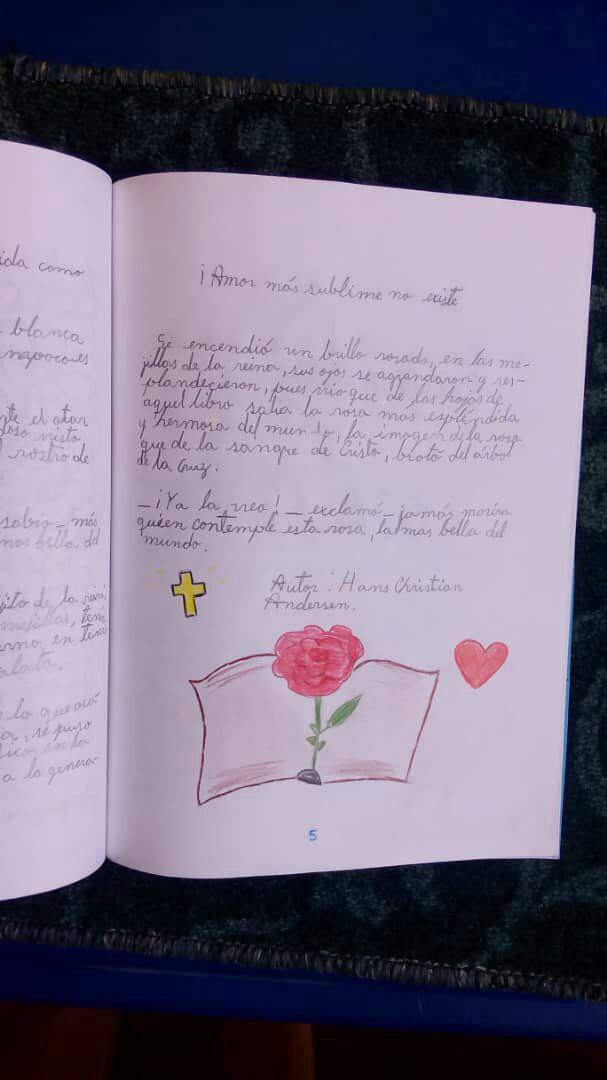 ida como
blanca
te el altar
rostro de
sabio _ más
bella del
jito de la
mejillas,
en
lo que
se puso
en la
a la genera-
¡Amor más sublime no existe
Se encendió un brillo rosado, en las me-
jillas de la reina, sus ojos se agrandaron y res-
plandecieron, pues vio que de las hojas de
aquel libro salia la rosa mas espléndida
y hermosa del mundo, la imagen de la rosa
que de la sangre de Cristo, brotó del árbol
de la Cruz.
_ ¡Ya la veo! _ exclamó _ jamás morira
quien contemple esta rosa, la mas bella del
mundo.
Autor : Hans Christian
Andersen.
5